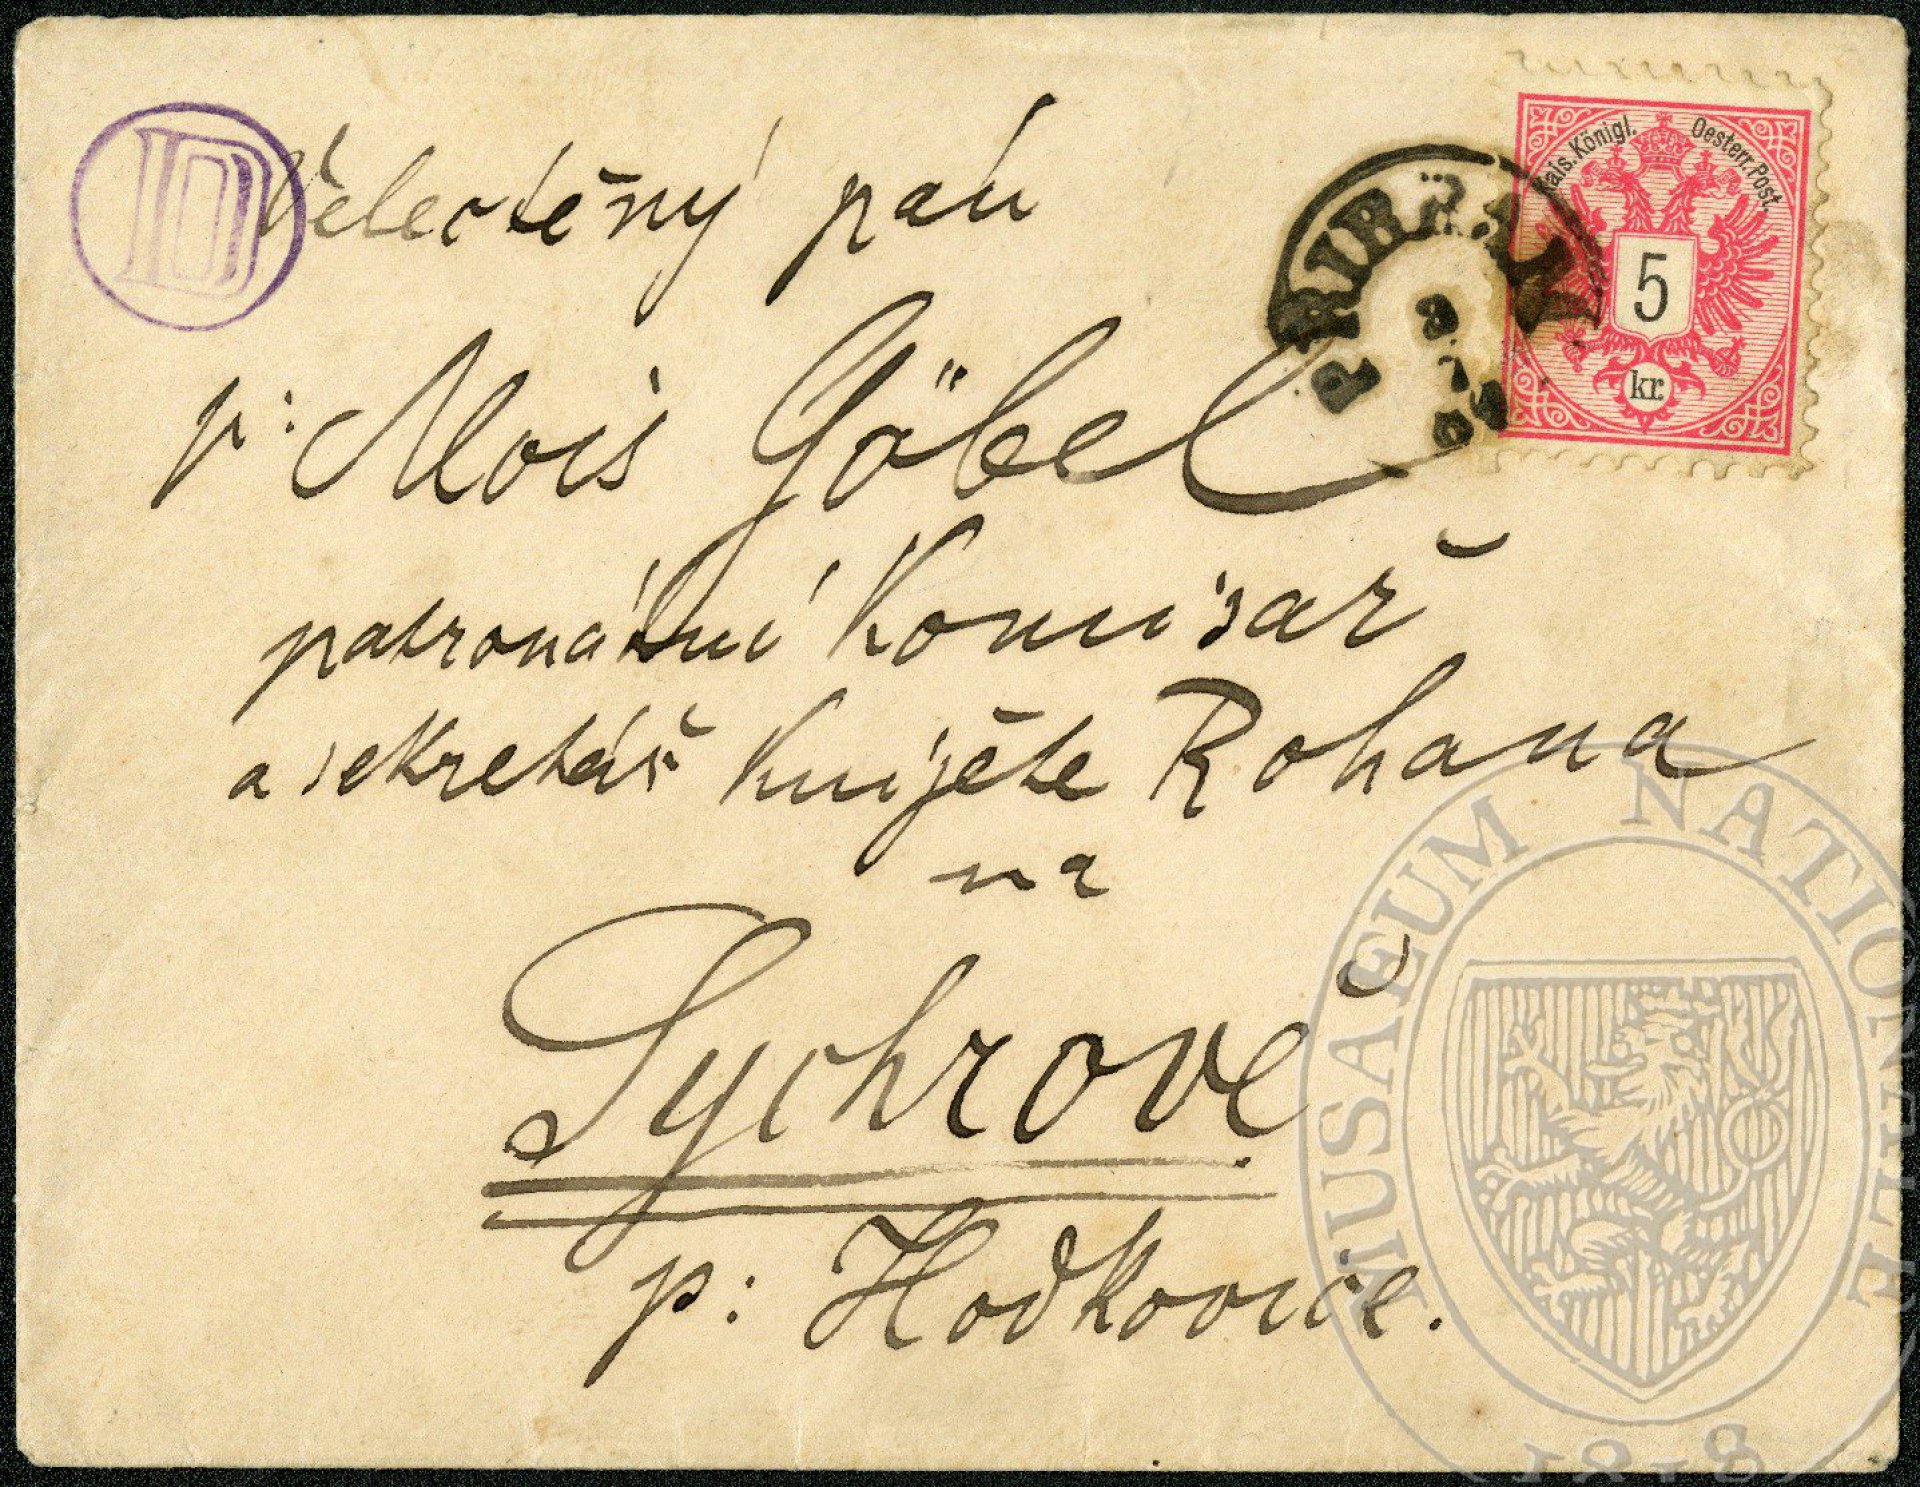 D
Velectěný pan
p: Alois Göbel
patronátní komisař
a sekretář knížete Rohana
na
Sychrově
p: Hodkovice.
PŘIBRAM
Kais. Königl. Oesterr. Post.
5
kr.
MUSAEUM NATIONALE
1818